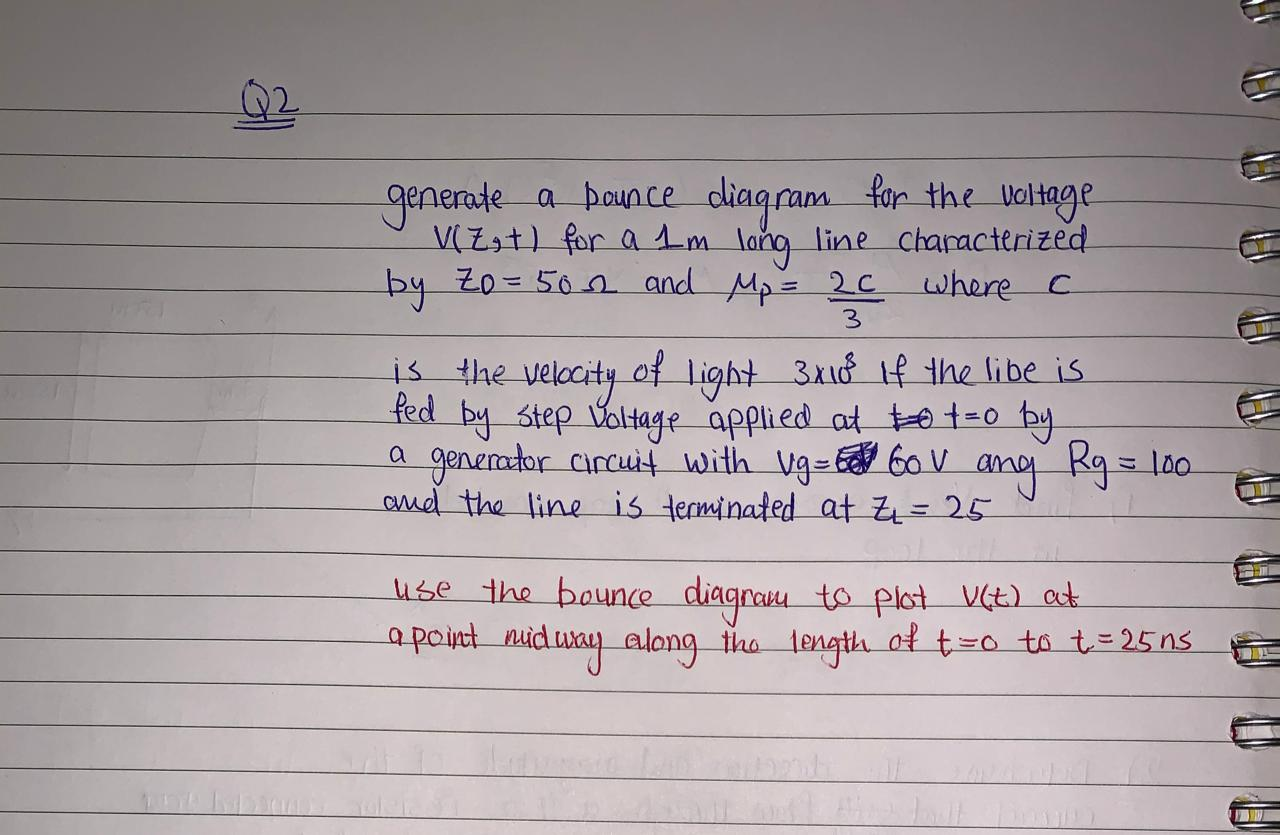 Q2
generate a bounce diagram for the voltage
V(Z,t) for a 1m long line characterized
by Z0 = 50 Ω and μp = 2c/3 where c
is the velocity of light 3x10⁸ If the libe is
fed by step Voltage applied at t=0 by
a generator circuit with Vg= 60 V ang Rg = 100
and the line is terminated at ZL = 25
use the bounce diagram to plot V(t) at
a point midway along the length of t=0 to t=25ns